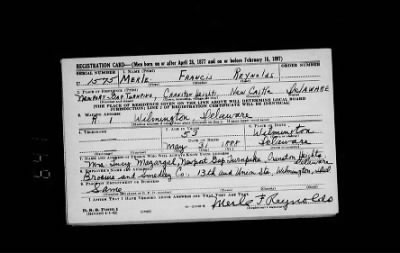 REGISTRATION CARD—(Men born on or after April 28, 1877 and on or before February 16, 1897)
SERIAL NUMBER 1. NAME (Print) ORDER NUMBER
U 1575 Merle Francis Reynolds
2. PLACE OF RESIDENCE (Print)
Newport-Gap Turnpike, Cranston Heights New Castle Delaware
[THE PLACE OF RESIDENCE GIVEN ON THE LINE ABOVE WILL DETERMINE LOCAL BOARD
JURISDICTION; LINE 2 OF REGISTRATION CERTIFICATE WILL BE IDENTICAL]
3. MAILING ADDRESS
Wilmington Delaware
4. TELEPHONE 5. AGE IN YEARS 6. PLACE OF BIRTH
53 Wilmington
DATE OF BIRTH
May 31 1888 Delaware
7. NAME AND ADDRESS OF PERSON WHO WILL ALWAYS KNOW YOUR ADDRESS
Mrs. Margargel, Newport Gap Turnpike Cranston Heights Delaware
8. EMPLOYER'S NAME AND ADDRESS
and Co., 13th and Union Sts, Wilmington,
9. PLACE OF EMPLOYMENT OR BUSINESS
Same
I AFFIRM THAT I HAVE VERIFIED ABOVE ANSWERS AND THAT THEY ARE TRUE.
D. S. S. Form 1
Merle F Reynolds